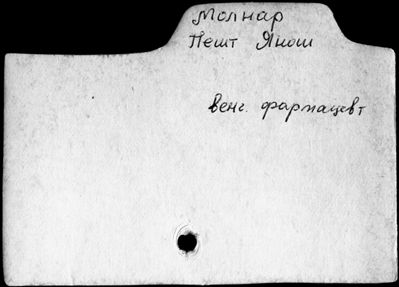 Молнар
Пешт Янош
венг. фармацевт